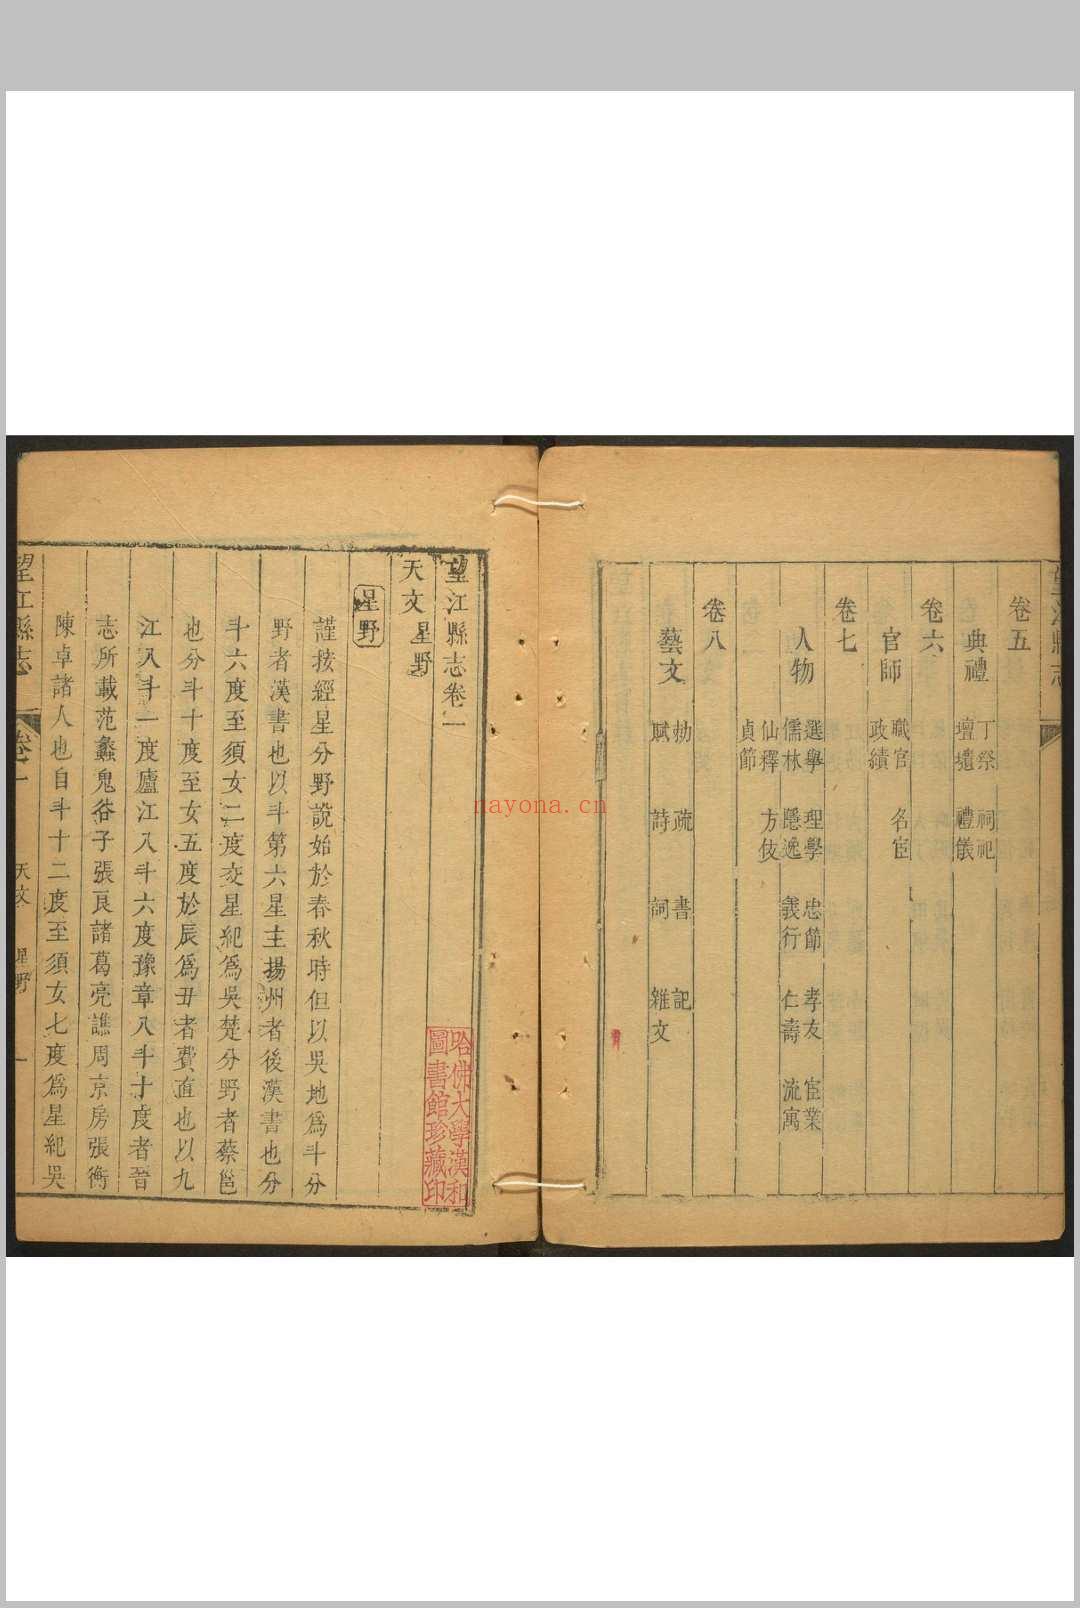 卷五
典禮
丁祭 祠祀
壇壝 禮儀
卷六
官師
職官 名宦
政績
卷七
人物
選舉 理學 忠節 孝友 宦業
儒林 隱逸 義行 仁壽 流寓
仙釋 方伎
貞節
卷八
藝文
勑 疏 書 記
賦 詩 詞 雜文
望江縣志卷一
天文 星野
星野
謹按經星分野說始於春秋時但以吳地爲斗分
野者漢書也以斗第六星主揚州者後漢書也分
斗六度至須女二度交星紀爲吳楚分野者蔡邕
也分斗十度至女五度於辰爲丑者費直也以九
江入斗一度廬江入斗六度豫章入斗十度者晉
志所載范蠡鬼谷子張良諸葛亮譙周京房張衡
陳卓諸人也自斗十二度至須女七度爲星紀吳
望江縣志
卷一
天文 星野
一
哈佛大學漢和
圖書館珍藏印
nayona.cn